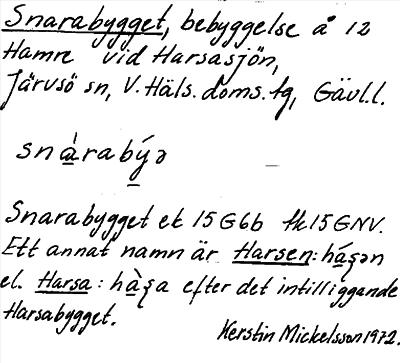 Snarabygget, bebyggelse å 12
Hamre vid Harsasjön,
Järvsö sn, V. Häls. doms. tg, Gävl.l.
snàrabýə
Snarabygget ek 15G6b fk 15GNV.
Ett annat namn är Harsen: háʂən
el. Harsa: hàʂa efter det intilliggande
Harsabygget.
Kerstin Mickelsson 1972.